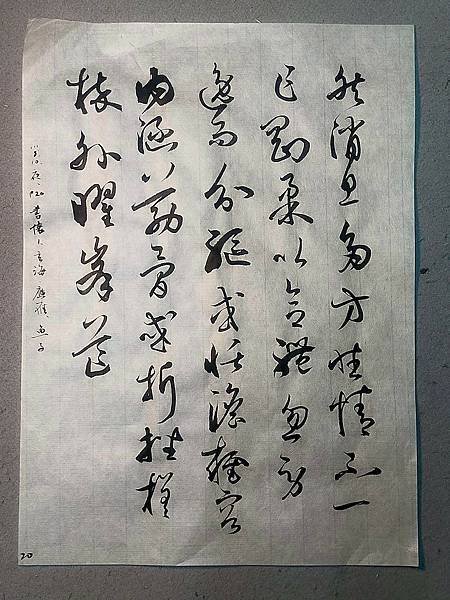 然消息多方性情不一
乍剛柔以合體忽勞
逸而分驅或恬澹雍容
内涵筋骨或折挫槎
枿外曜峯芒
20